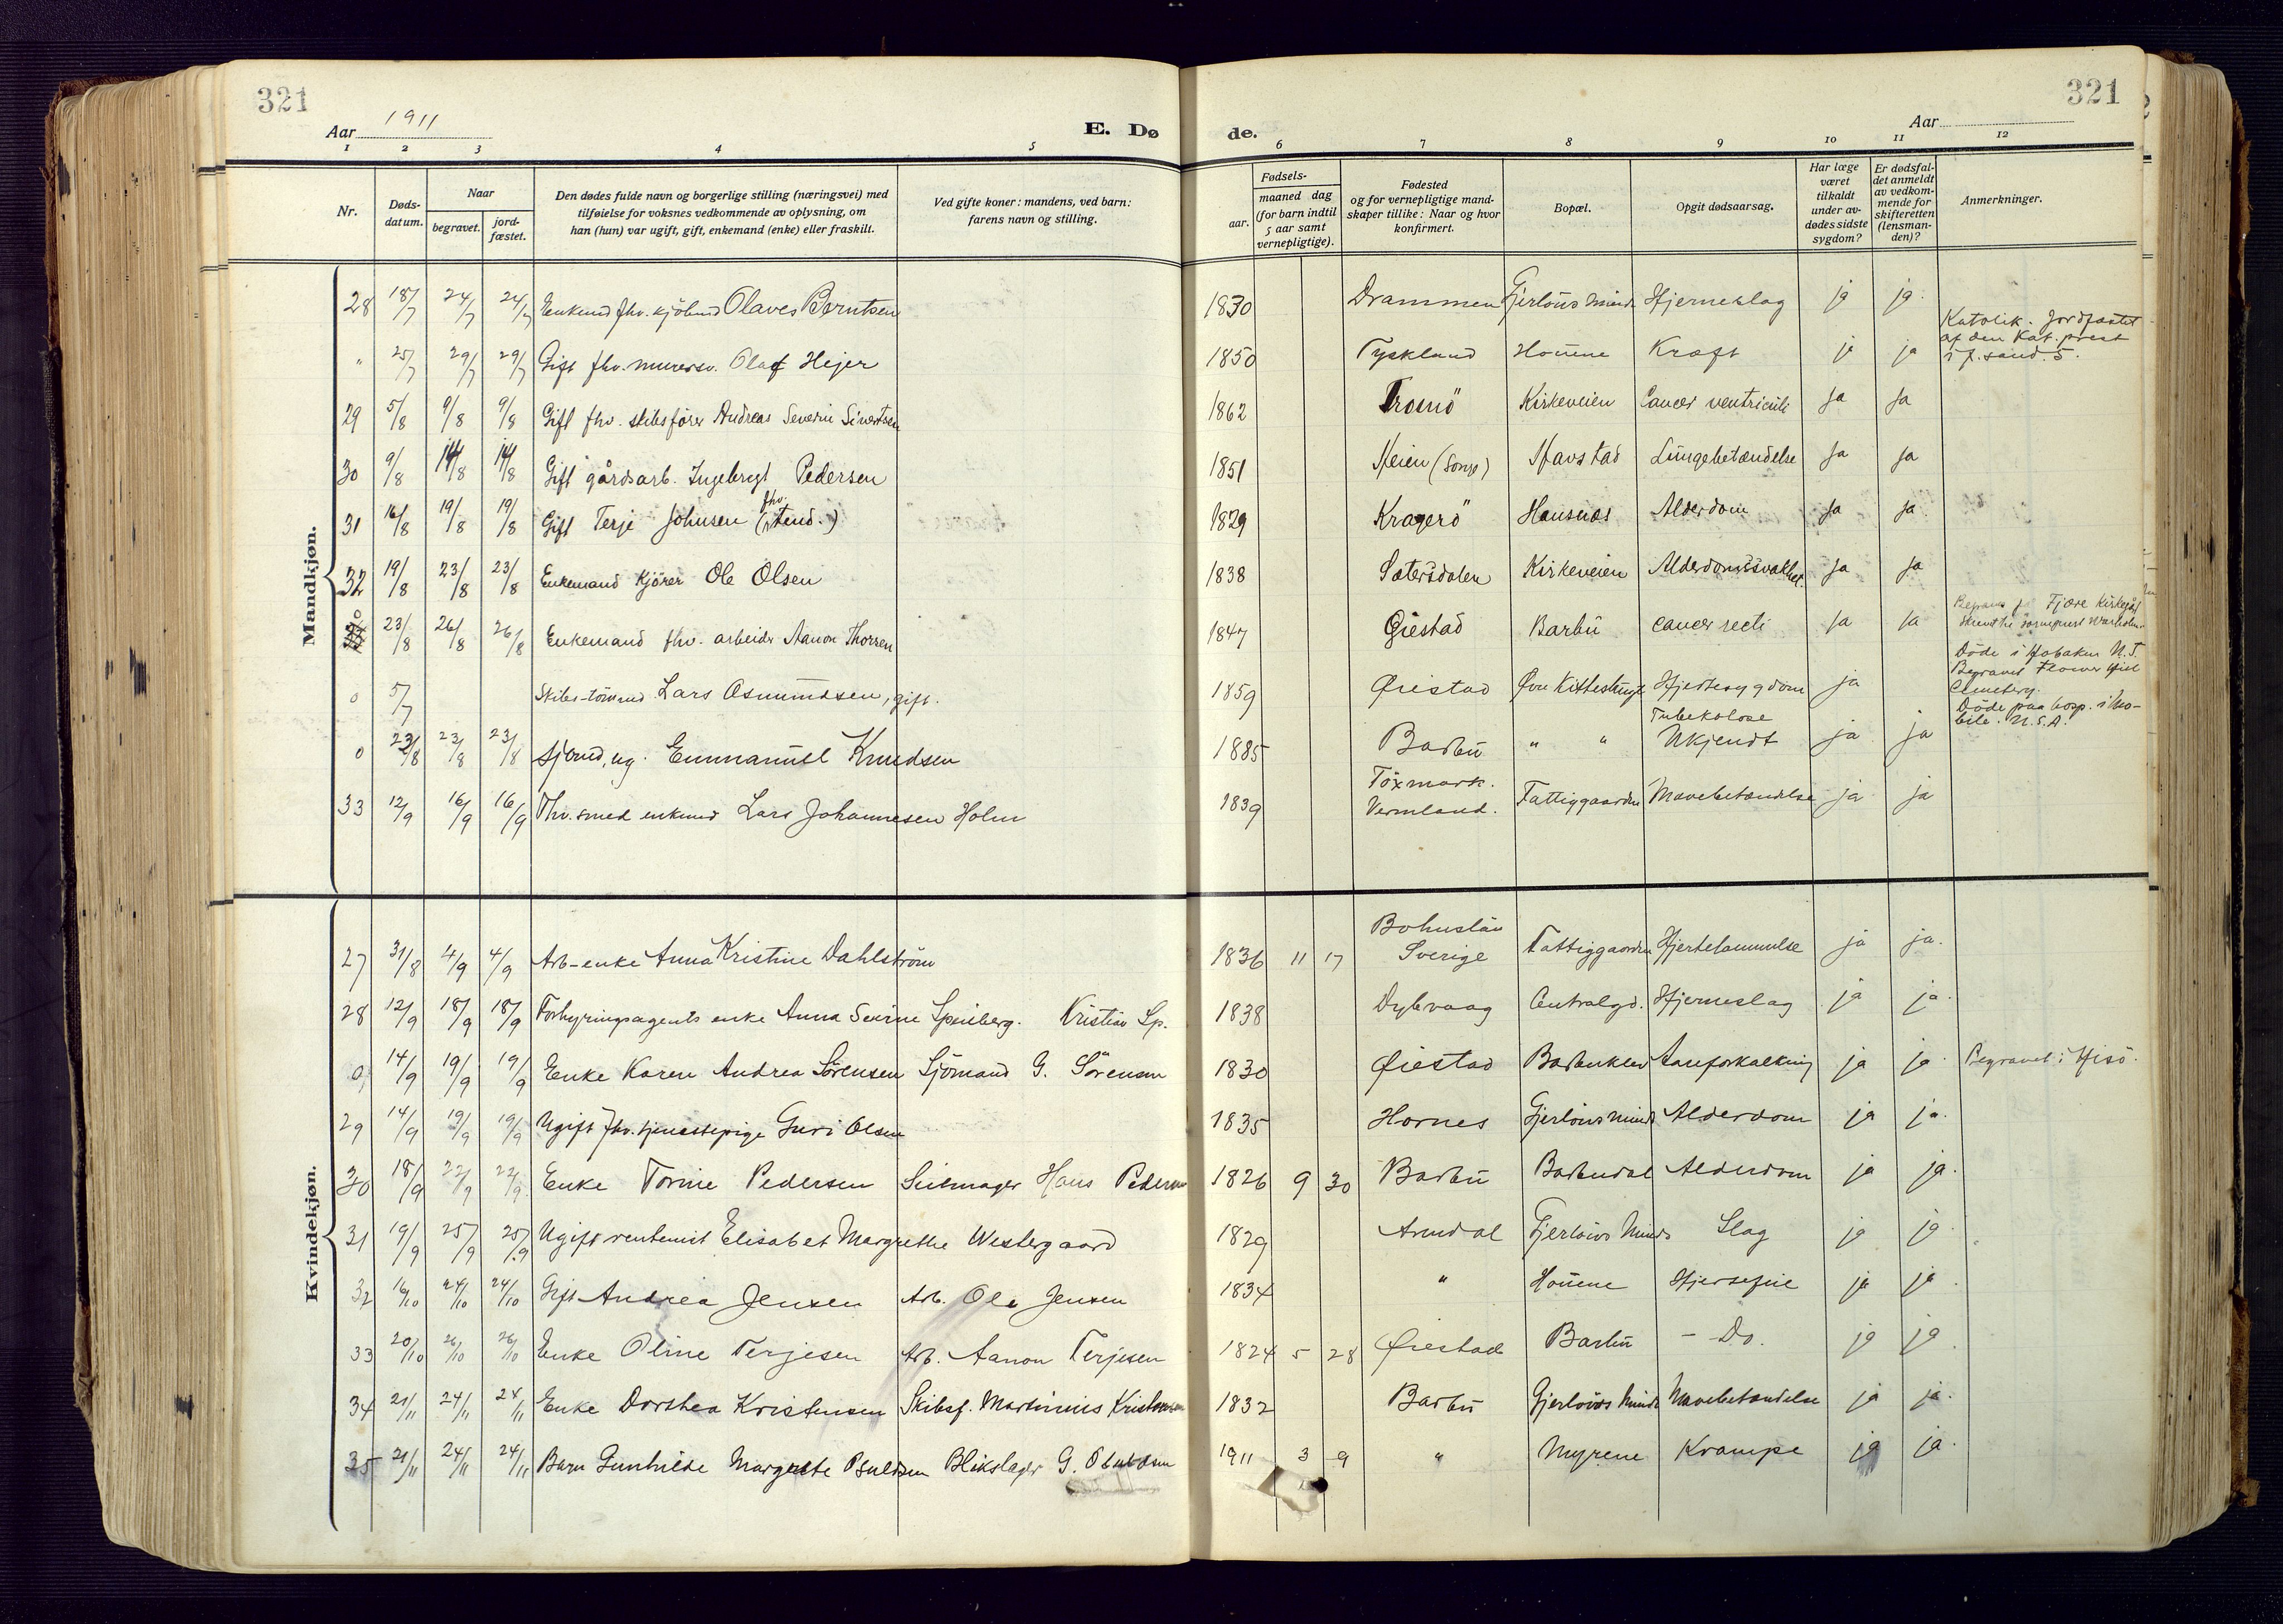 321
321
Aar 1911
E. Dø
de.
Aar
1 2 3 4 5 6 7 8 9 10 11 12
Nr.
Døds-
datum.
Naar
begravet.
jord-
fæstet.
Den dødes fulde navn og borgerlige stilling (næringsvei) med
tilføielse for voksnes vedkommende av oplysning, om
han (hun) var ugift, gift, enkemand (enke) eller fraskilt.
Ved gifte koner: mandens, ved barn:
farens navn og stilling.
Fødsels-
aar.
maaned dag
(for barn indtil
5 aar samt
vernepligtige).
Fødested
og for vernepligtige mand-
skaper tillike: Naar og hvor
konfirmert.
Bopæl.
Opgit dødsaarsag.
Har læge
været
tilkaldt
under av-
dødes sidste
sygdom?
Er dødsfal-
det anmeldt
av vedkom-
mende for
skifteretten
(lensman-
den)?
Anmerkninger.
Mandkjøn.
28 18/7 24/7 24/7 Enkmd fhv. kjöbmd Olaves Berntsen 1830 Drammen Gjerlöws Minde Hjerneslag ja ja.
" 25/7 29/7 29/7 Gift fhv. murersv. Olaf Hejer 1850 Tyskland Houene Kræft ja ja Katolik. Jordfæstet
af den Kat. prest
29 5/8 9/8 9/8 Gift fhv. skibsförer Andreas Severin Sivertsen 1862 Tromö Kirkeveien Cancer ventriculi Ja Ja
30 9/8 14/8 14/8 Gift gårdsarb. Ingebregt Pedersen 1851 Heien Stavstad Lungebetændelse Ja Ja
31 16/8 19/8 19/8 Gift Terje Johnsen (fhv. 1829 Kragerö Hansnæs Alderdom Ja Ja
32 19/8 23/8 23/8 Enkemand Kjörer Ole Olsen 1838 Sætersdalen Kirkeveien Alderdomssvakhet. Ja Ja
0 23/8 26/8 26/8 Enkemand fhv. arbeider Aanon Thorsen 1847 Öiestad Barbu cancer recti Ja Ja Fjære Kirkegård
0 5/7 Skibs-tömmd Lars Osmundsen, gift. 1859 Øiestad Hjertesygdom ja Döde i Hoboken N.J.
Begravet Flower Hill
Cemetery.
0 23/8 23/8 23/8 sjömd, ug. Emmanuel Knudsen 1885 Barbu " " Tuberkulose
Ukjendt ja ja Döde paa hosp. i Mo-
bile. U.S.A.
33 12/9 16/9 16/9 Fhv. smed enkmd Lars Johannesen Holm 1839 Töxmark.
Vermland. Fattiggaarden Mavebetændelse ja ja
Kvindekjøn.
27 31/8 4/9 4/9 Arb-enke Anna Kristine Dahlström 1836 11 17 Bohuslän
Sverige Fattiggaarden Hjertelammelse ja ja.
28 12/9 18/9 18/9 Forhyringsagents enke Anna Sevrine Spinberg. Kristian Sp. 1838 Dybvaag Centralgd. Hjerneslag ja ja.
0 14/9 19/9 19/9 Enke Karen Andrea Sörensen Sjömand G. Sörensen 1830 Øiestad Barbuklev Aareforkalkning ja ja Begravet i Hisö.
29 14/9 19/9 19/9 Ugift fhv. tjenestepige Guri Olsen 1835 Hornes Gjerlöws Minde Alderdom ja ja.
30 18/9 22/9 22/9 Enke Torine Pedersen Seilmager Hans Pedersen 1826 9 30 Barbu Barbudal Alderdom ja ja.
31 19/9 25/9 25/9 Ugift rentenist Elisabet Margrethe Westergaard 1829 Arendal Gjerlöws Minde Slag ja ja.
32 16/10 24/10 24/10 Gift Andrea Jensen Arb. Ole Jensen 1834 " Houene Hjertefeil ja ja.
33 20/10 26/10 26/10 Enke Oline Terjesen Arb. Aanon Terjesen 1824 5 28 Øiestad Barbu - Do. ja ja.
34 21/11 24/11 24/11 Enke Dorthea Kristensen Skibsf. Martinius Kristensen 1832 Barbu Gjerlöws Minde Mavebetændelse ja ja.
35 21/11 24/11 24/11 Barn Gunhilde Margrethe Blikslager G. 1911 3 9 " Myrene Krampe ja ja.